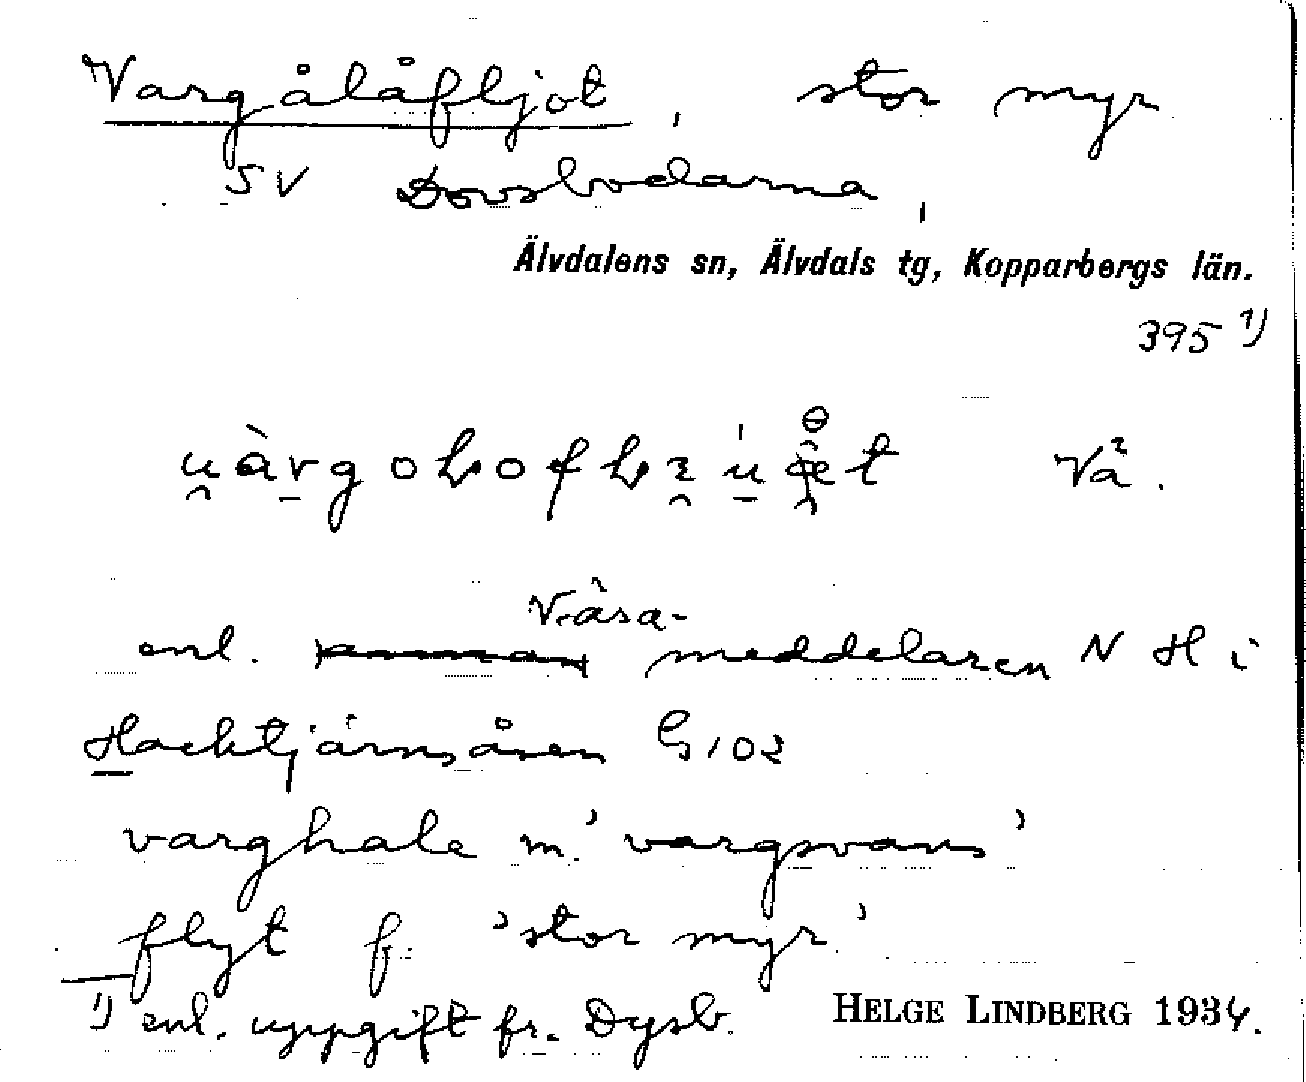 Vargålåfljot, stor myr
SV Dovsbodarna,
Älvdalens sn, Älvdals tg, Kopparbergs län.
395 1)
Vå.
Våsa-
enl. meddelaren N H i
Hacktjärnsåsen G102
varghale m. 'vargsvans'
flyt f. 'stor myr.'
1) enl. uppgift fr. Dysb.
HELGE LINDBERG 1934.